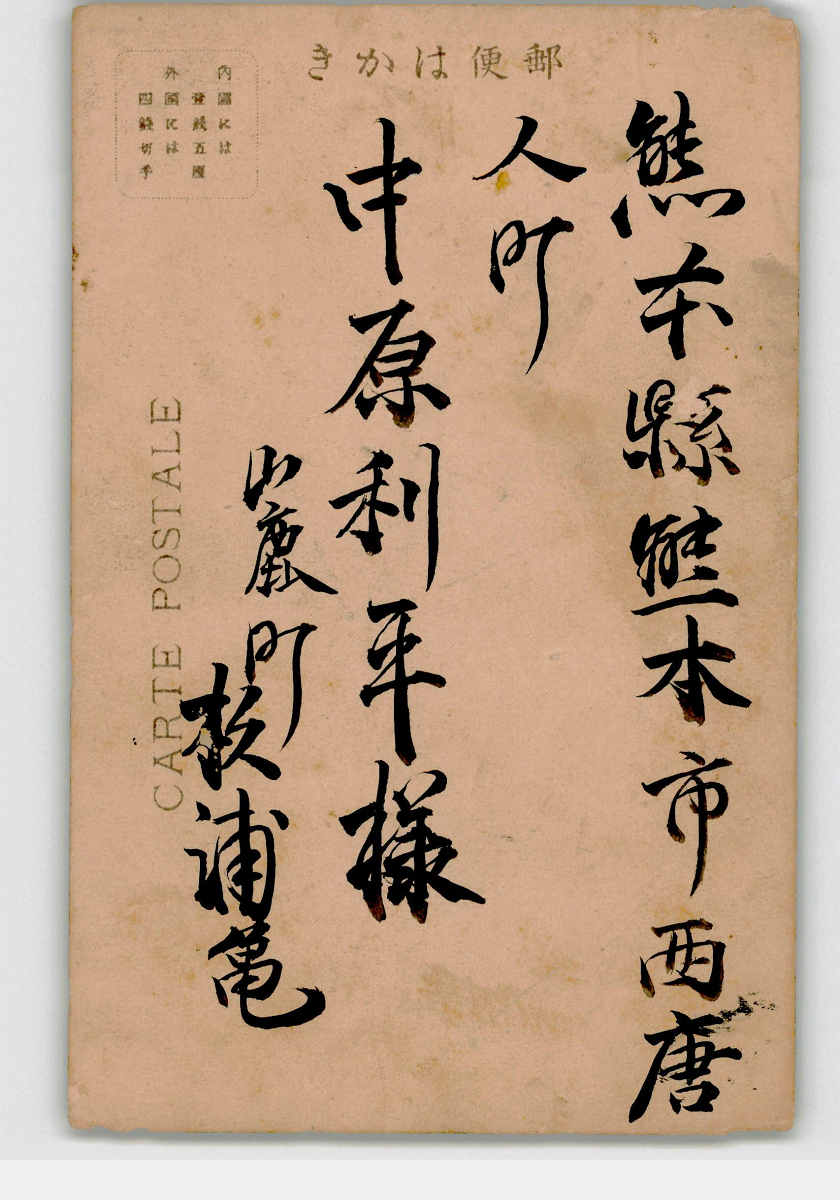 郵便はかき
熊本縣熊本市西唐
人町
中原利平様
山鹿町
浦亀
内國には
壹錢五厘
外國には
四錢切手
CARTE POSTALE